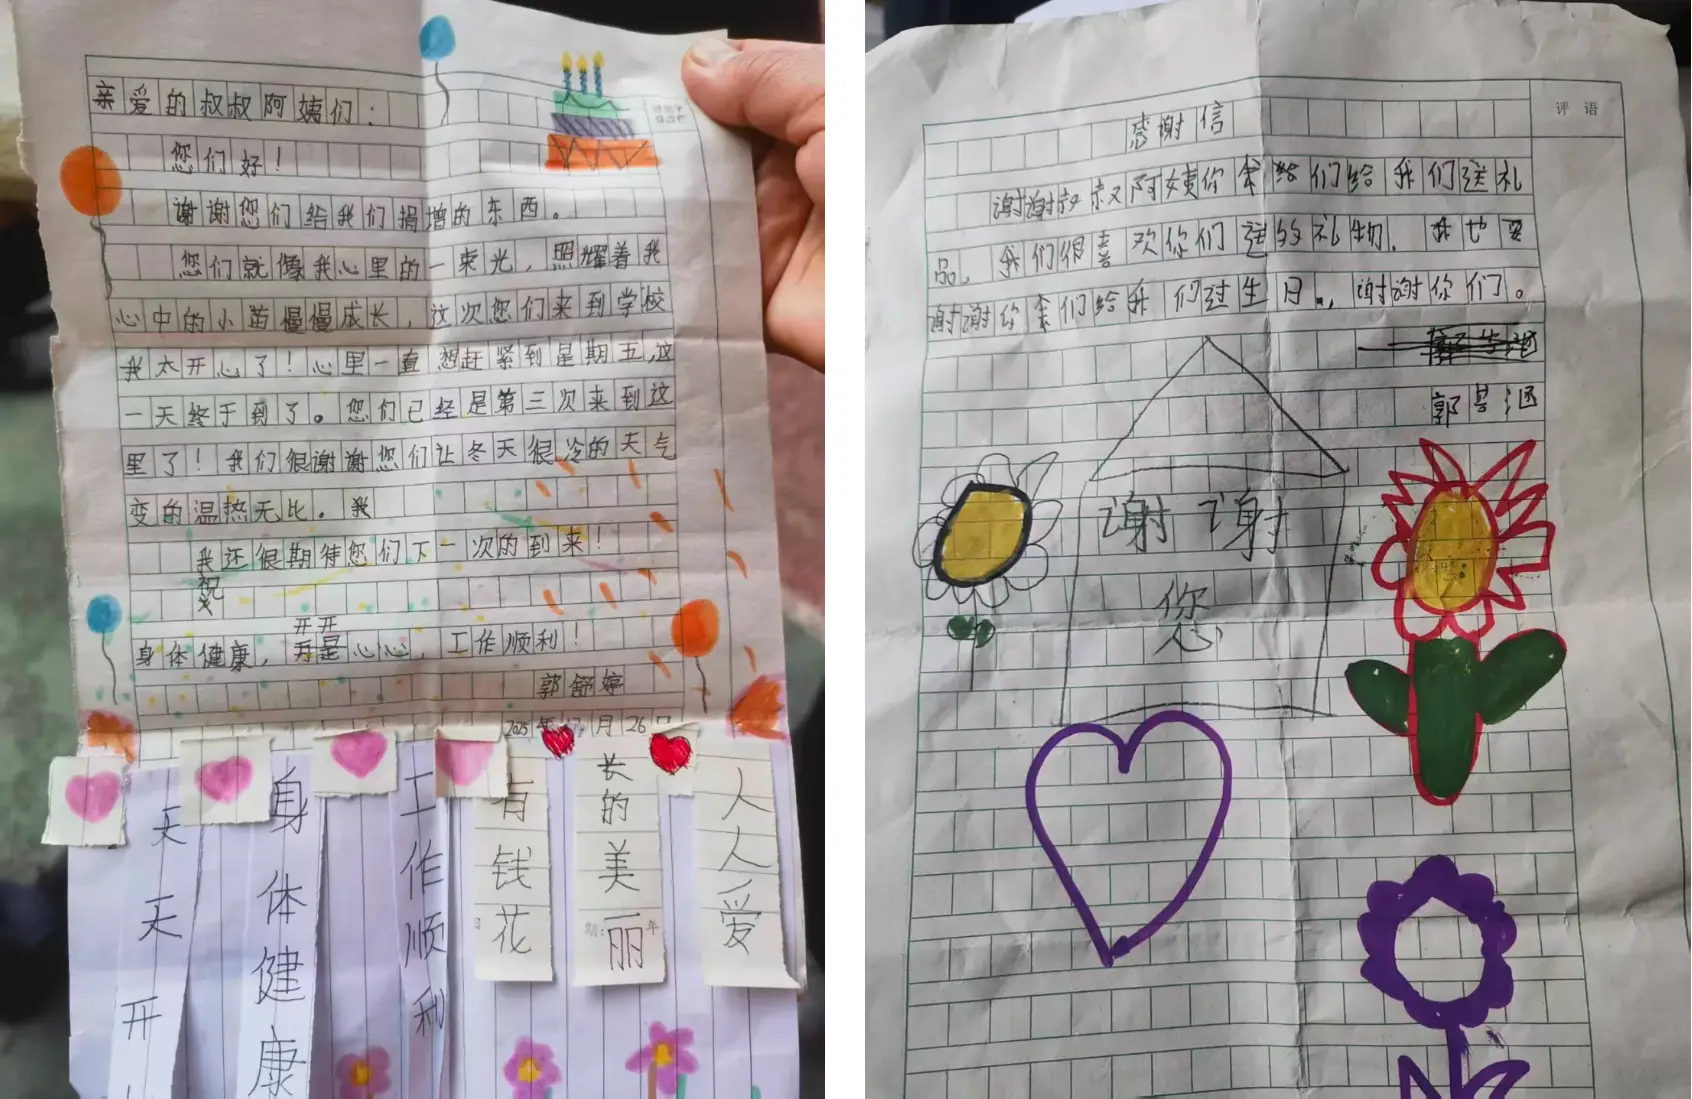 亲爱的叔叔阿姨们：
您们好！
谢谢您们给我们捐增的东西。
您们就像我心里的一束光，照耀着我
心中的小苗慢慢成长，这次您们来到学校
我太开心了！心里一直想赶紧到星期五，这
一天终于到了。您们已经是第三次来到这
里了！我们很谢谢您们让冬天很冷的天气
变的温热无比。我
我还很期待您们下一次的到来！
祝
开开
身体健康，心心，工作顺利！
郭舒婷
2025年12月26日
天天开
身体健康
工作顺利
有钱花
长的美丽
人人爱
评语
感谢信
谢谢叔叔阿姨你们给我们送礼
品，我们很喜欢你们送的礼物，我也要
谢谢你们给我们过生日，谢谢你们。
郭
谢谢
您